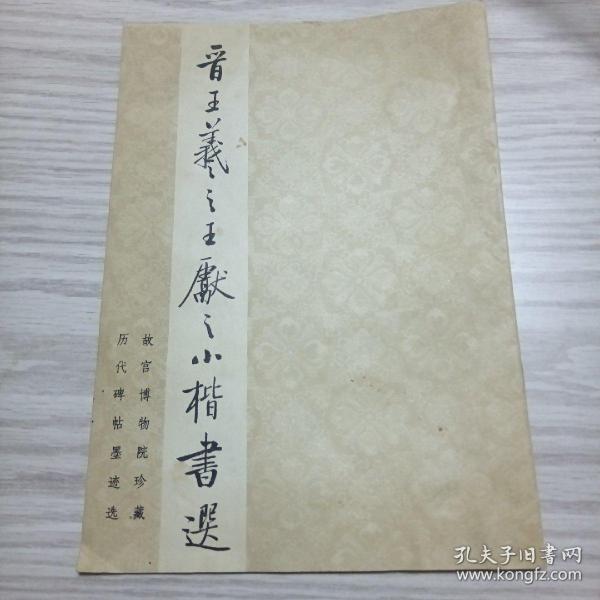 晋王羲之王献之小楷書選
故宫博物院珍藏
历代碑帖墨迹选
孔夫子旧书网
www.kongfz.com